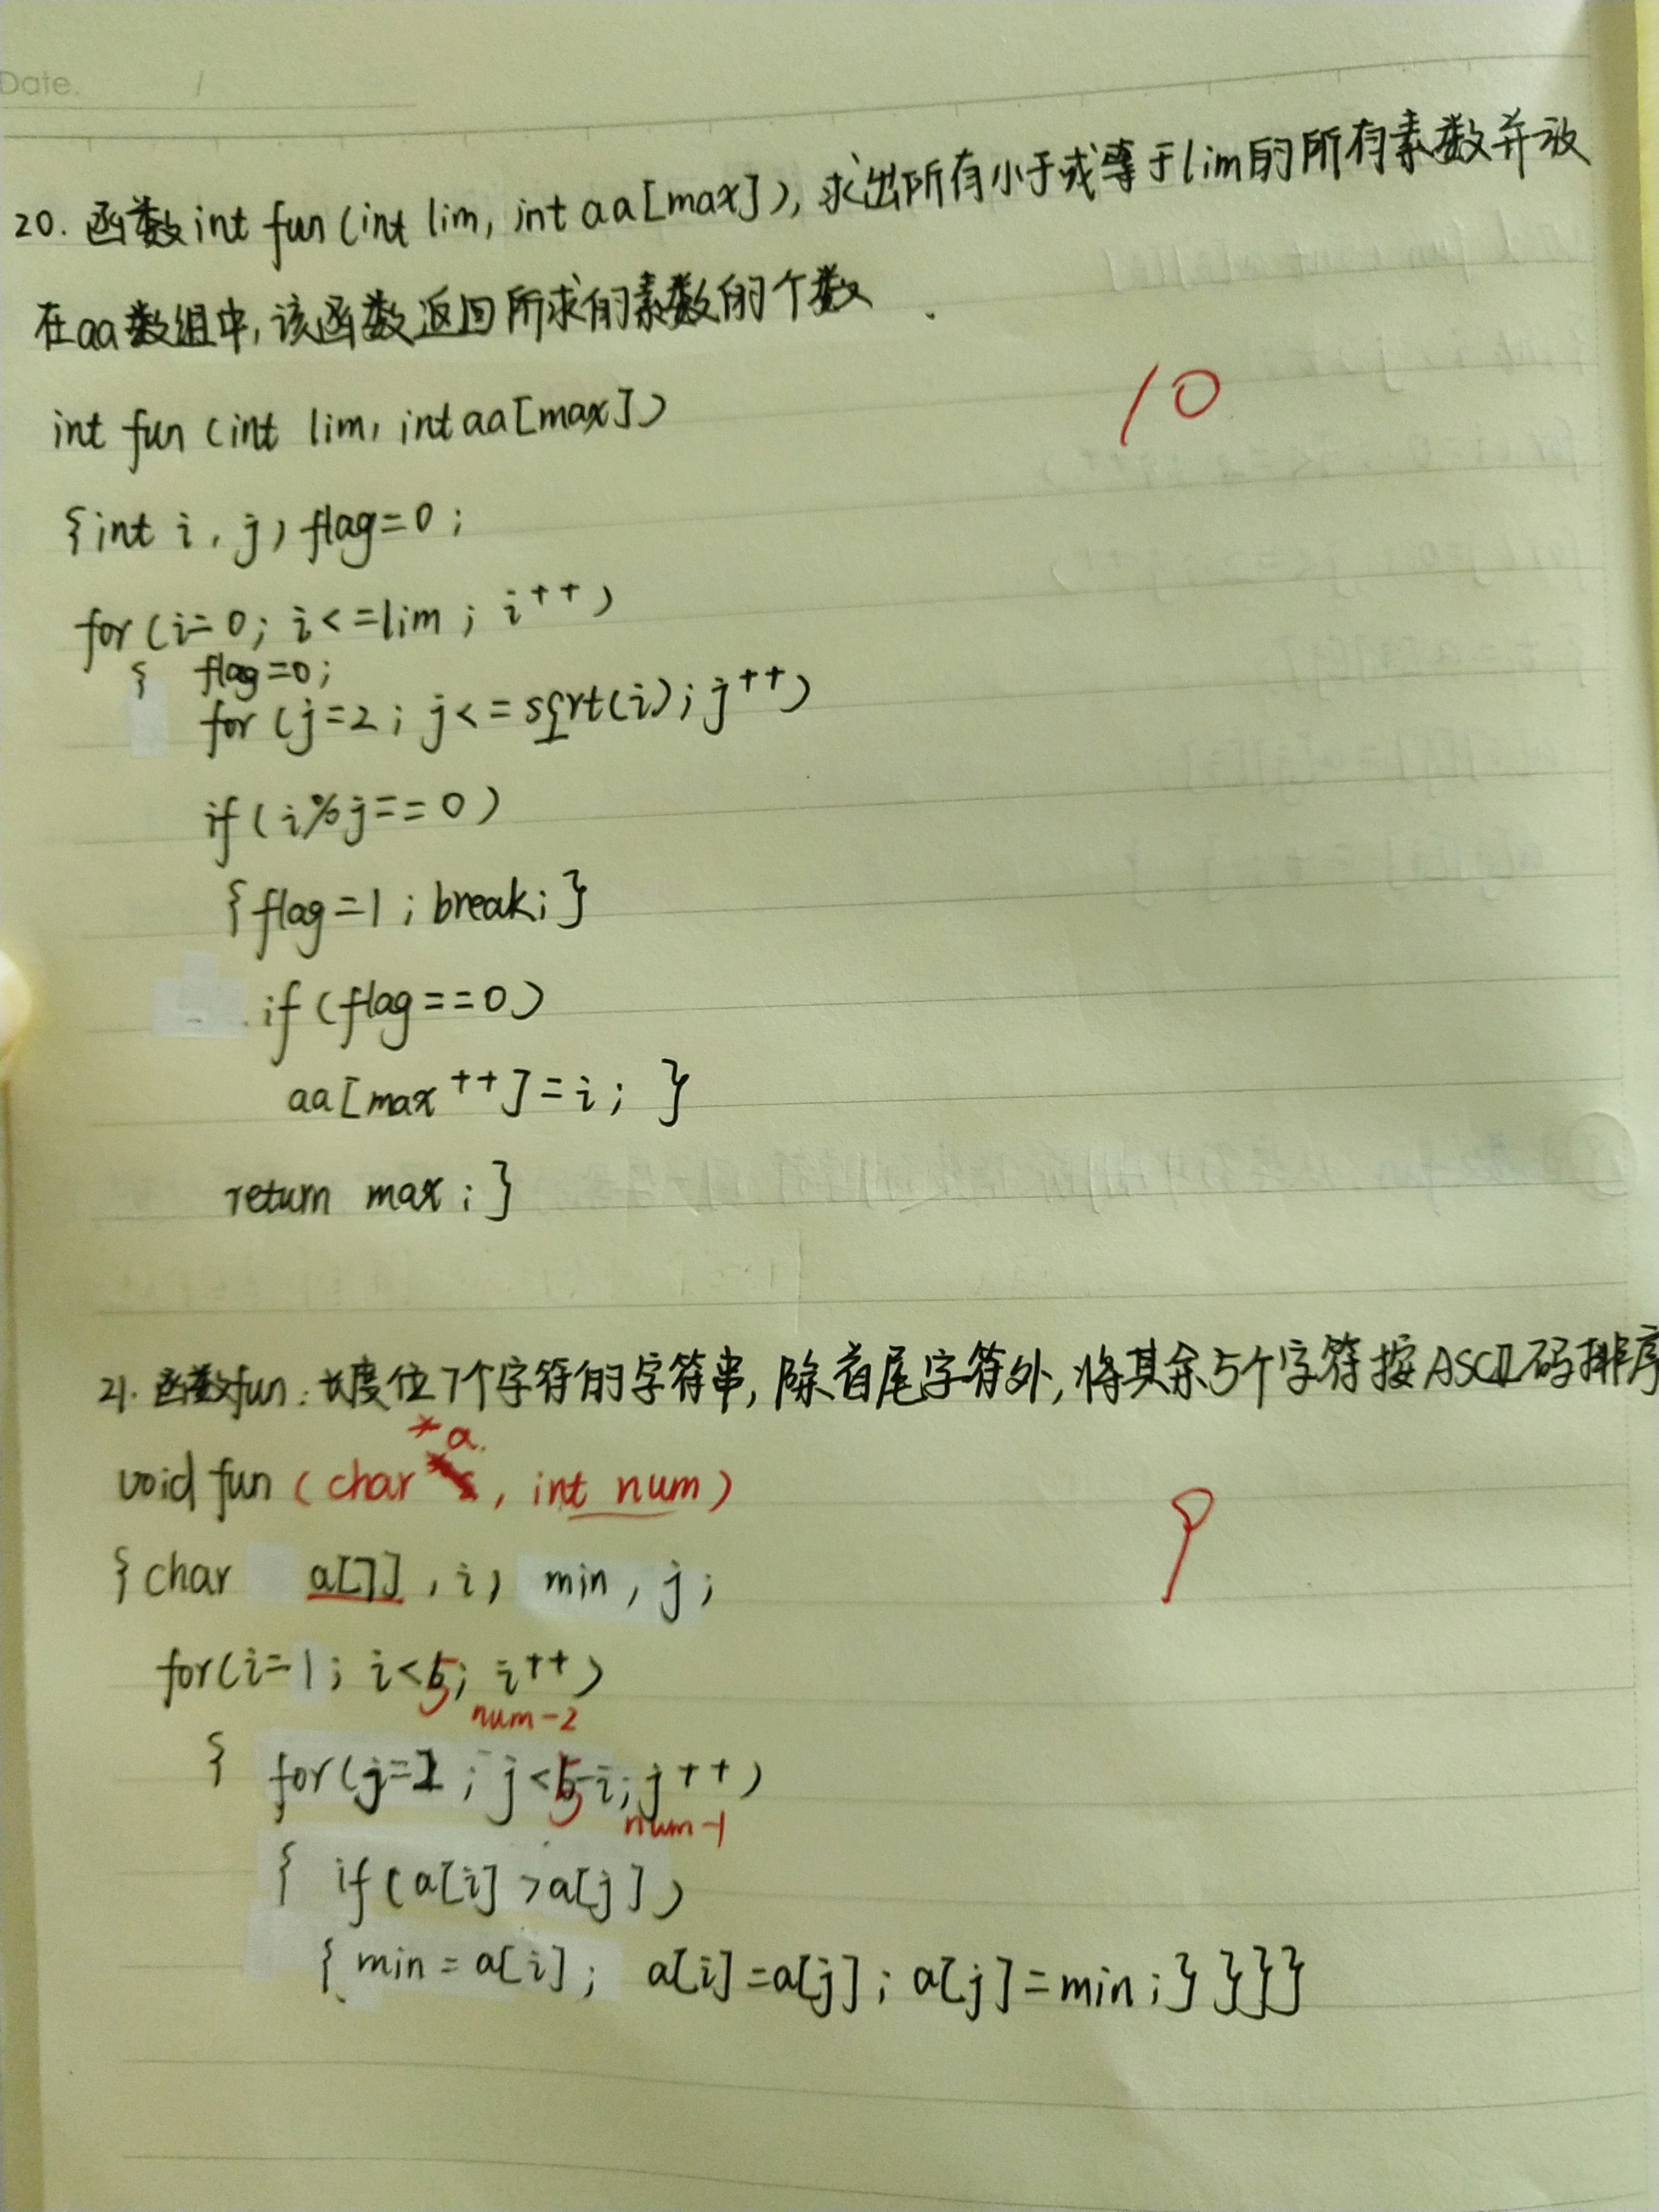 Date.        /
20. 函数int fun(int lim, int aa[max]), 求出所有小于或等于lim的所有素数并放
在aa数组中, 该函数返回所求的素数的个数.
10
int fun (int lim, int aa[max])
{int i, j, flag=0;
for(i=0; i<=lim; i++)
{ flag=0;
for (j=2; j<=sqrt(i); j++)
if(i%j==0)
{flag=1; break;}
if(flag==0)
aa[max++]=i; }
return max; }
21. 函数fun: 长度位7个字符的字符串, 除首尾字符外, 将其余5个字符按ASCII码排序
*a.
void fun (char , int num)
9
{char a[7], i, min, j;
for(i=1; i<5; i++)
num-2
{ for(j=1; j<5-i; j++)
num-1
{ if(a[i]>a[j])
{min=a[i]; a[i]=a[j]; a[j]=min;}}}}